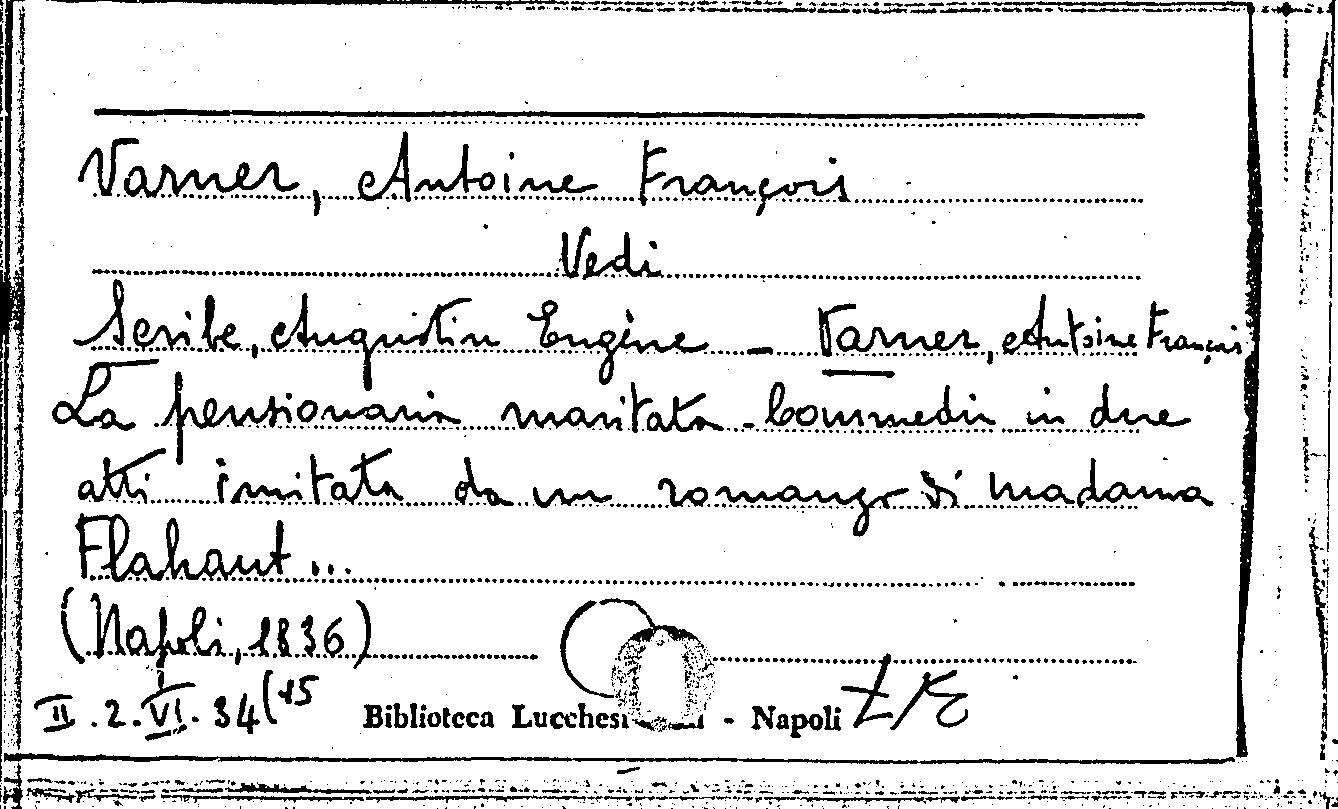 Varner, Antoine François
Vedi
Scribe, Augustin Eugène - Varner, Antoine Françoi
La pensionaria maritata - Commedia in due
atti imitata da un romanzo di madama
Flahaut...
(Napoli, 1836)
II.2.VI.34(15
Biblioteca Lucchesi - Napoli